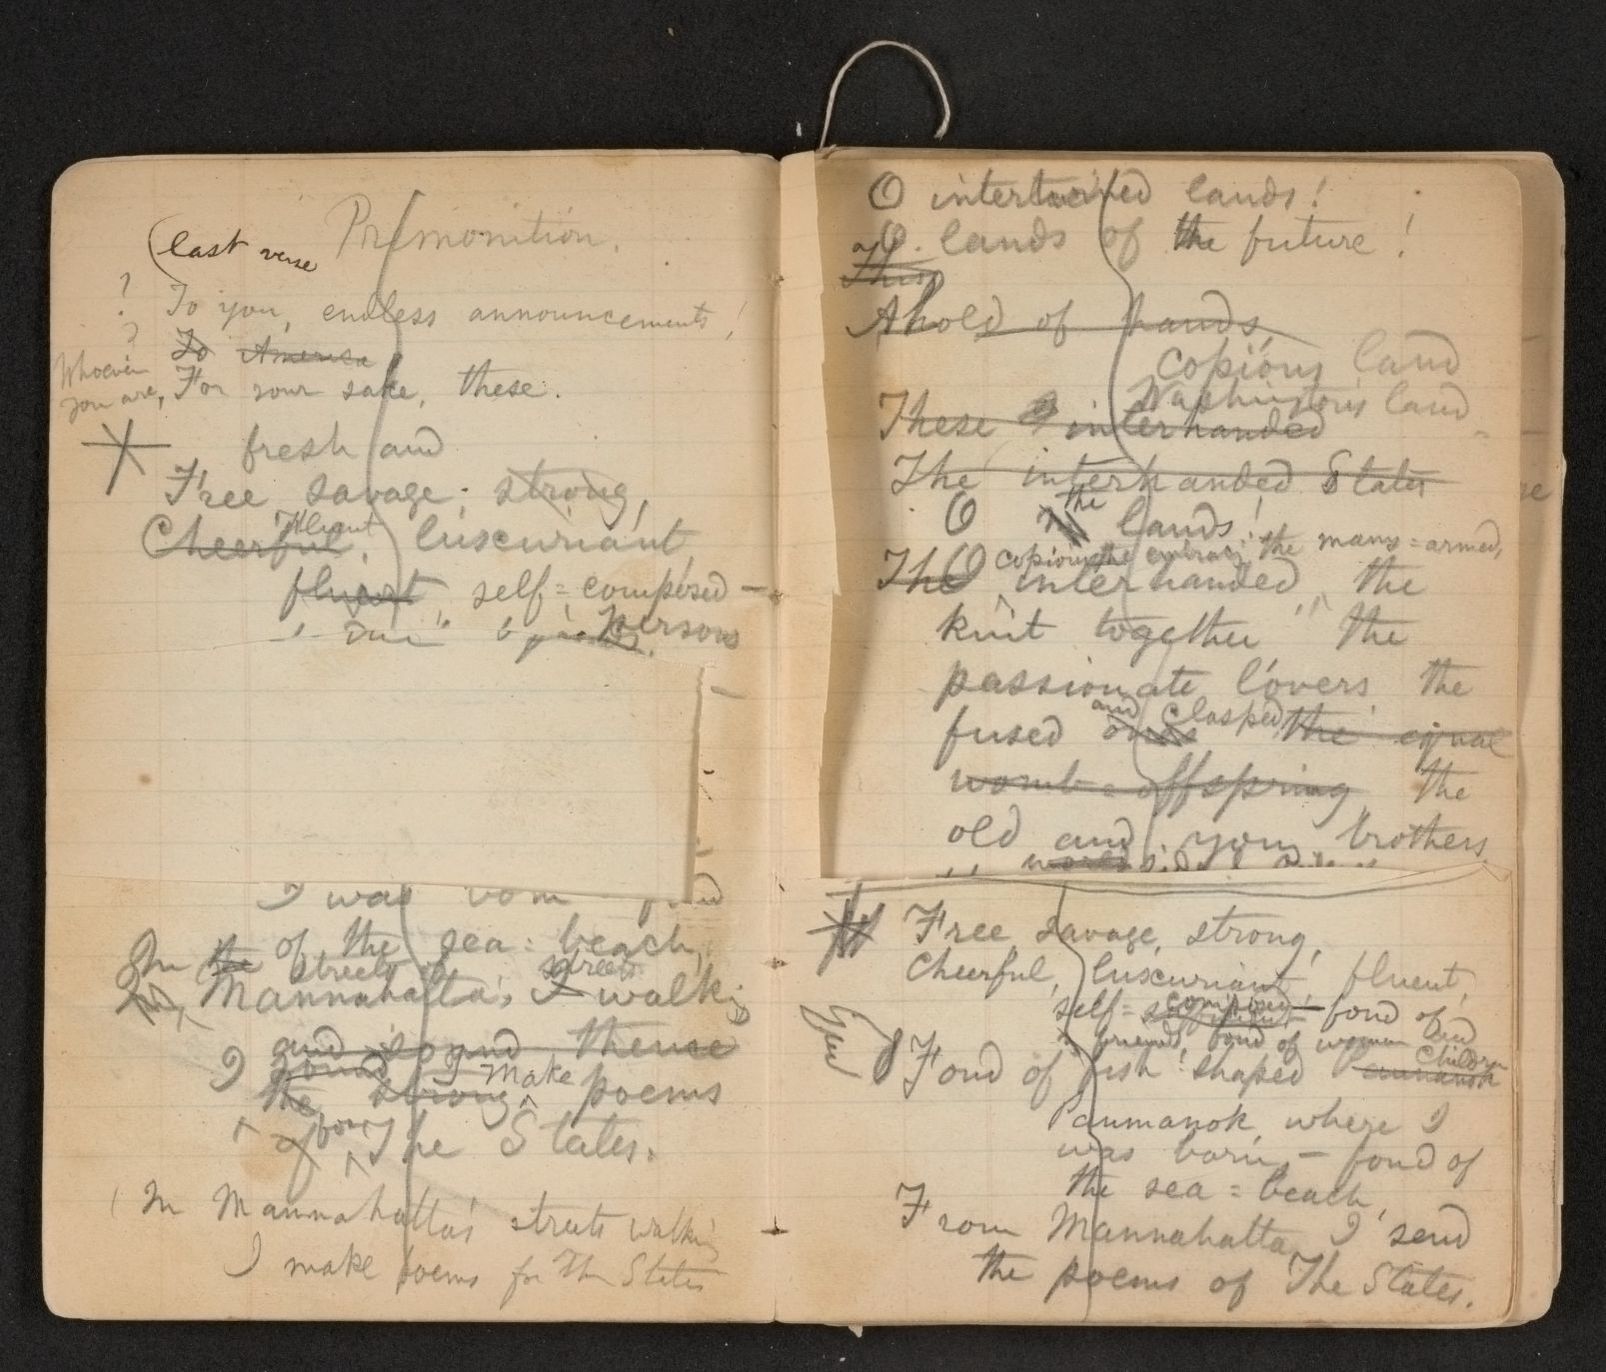 Premonition.
(last verse
? To you, endless announcements!
?
To America
Whoever
you are, For your sake, these.
fresh and
Free, savage, strong,
fluent
Cheerful, luxuriant,
fluent, self=composed —
persons
I was born fond
In the of the sea=beach,
streets of streets
Mannahatta's, I walking
and sound thence
I sound I make
the strong poems
for
of The States.
(In Mannahatta's streets walking
I make poems for The States
O intertwined lands!
O lands of the future!
This
Ahold of hands
copious land
Washington's land
These interhanded
The interhanded States
the
O lands!
copious the embracing the many=armed,
The O interhanded, the
knit together the
passionate lovers the
and clasped
fused ones the equal
womb=offspring, the
old and young brothers
Free, savage, strong,
Cheerful, luxuriant, fluent,
composed
self=sufficient — fond of
friends, fond of women and
children
Fond of fish=shaped Paumanok
Paumanok, where I
was born — fond of
the sea=beach,
From Mannahatta I send
the poems of The States.